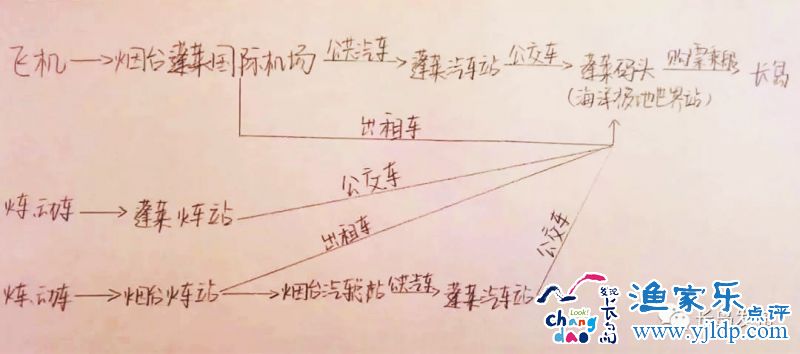 飞机→烟台蓬莱国际机场 公共汽车→蓬莱汽车站 公交车→蓬莱码头 购票乘船 长岛
(海洋极地世界站)
出租车
公交车
火车、动车→蓬莱火车站
出租车
公交车
火车、动车→烟台火车站→烟台汽车总站 公共汽车 蓬莱汽车站
发现长岛
Look!
chang dao
渔家乐点评
www.yjldp.com